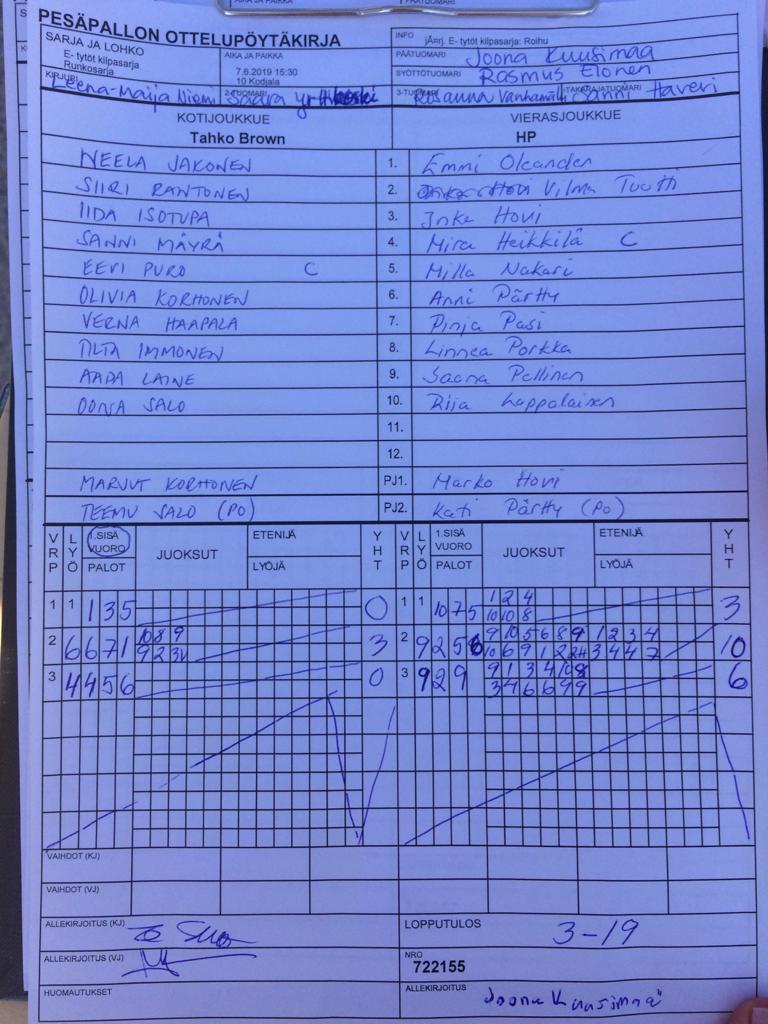 PESÄPALLON OTTELUPÖYTÄKIRJA
SARJA JA LOHKO
E- tytöt kilpasarja
Runkosarja
AIKA JA PAIKKA
7.6.2019 15:30
10 Kodjala
INFO jÄ=rj. E- tytöt kilpasarja: Roihu
PÄÄTUOMARI Joona Kuusimaa
SYÖTTÖTUOMARI Rasmus Elonen
KIRJURI Leena-Maija Niemi
2-TUOMARI Saara
3-TUOMARI Rosanna Vanhamäki
TAKARAJATUOMARI Sanni Haveri
KOTIJOUKKUE VIERASJOUKKUE
Tahko Brown HP
NEELA JAKONEN 1. Emmi Oleander
SIIRI RANTONEN 2. Vilma Tuotti
IIDA ISOTUPA 3. Inke Hovi
SANNI MÄYRÄ 4. Mira Heikkilä C
EEVI PURO C 5. Milla Nakari
OLIVIA KORHONEN 6. Anni Pärtty
VERNA HAAPALA 7. Pinja Pasi
TILTA IMMONEN 8. Linnea Porkka
AADA LAINE 9. Saana Pellinen
OONA SALO 10. Riia Lappalainen
11.
12.
MARJUT KORHONEN PJ1. Marko Hovi
TEEMU SALO (PO) PJ2. Kati Pärtty (PO)
VRP LYÖ 1.SISÄ VUORO PALOT JUOKSUT ETENIJÄ LYÖJÄ YHT VRP LYÖ 1.SISÄ VUORO PALOT JUOKSUT ETENIJÄ LYÖJÄ YHT
1 1 1 3 5 0 1 1 10 7 5 1 2 4 3
10 10 8
2 6 6 7 1 10 8 9 3 2 9 2 5 6 9 10 5 6 8 9 1 2 3 4 10
9 2 3 10 6 9 1 2 2 3 4 4 7
3 4 4 5 6 0 3 9 2 9 9 1 3 4 10 8 6
3 4 6 6 9 9
VAIHDOT (KJ)
VAIHDOT (VJ)
ALLEKIRJOITUS (KJ) LOPPUTULOS 3-19
ALLEKIRJOITUS (VJ) NRO
722155
HUOMAUTUKSET ALLEKIRJOITUS Joona Kuusimaa